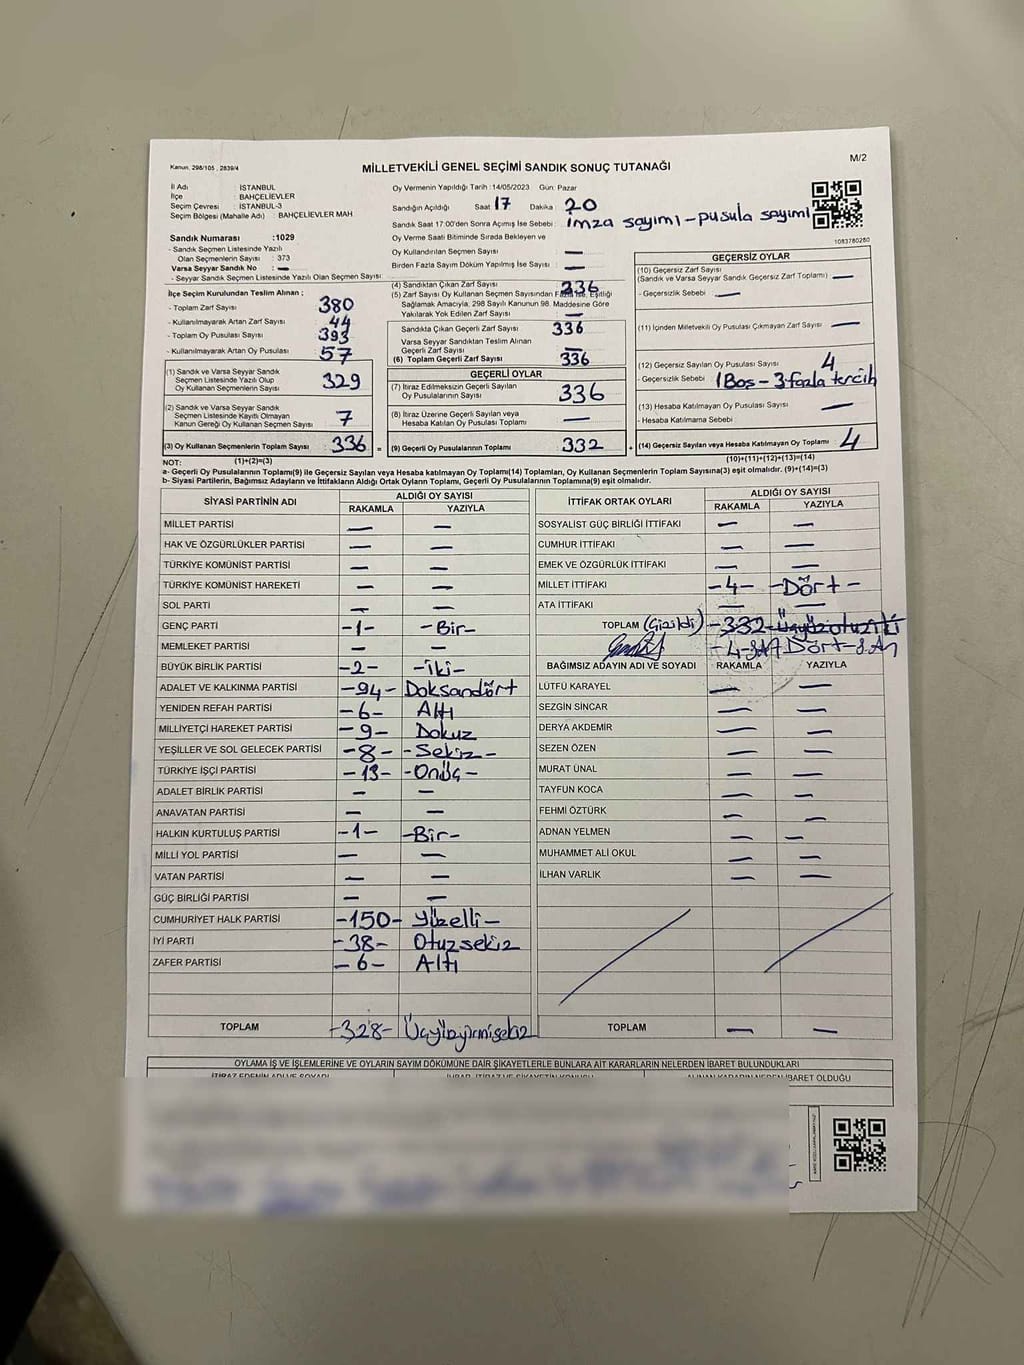 Kanun, 298/105 , 2839/4
MİLLETVEKİLİ GENEL SEÇİMİ SANDIK SONUÇ TUTANAĞI
M/2
İl Adı : İSTANBUL
İlçe : BAHÇELİEVLER
Seçim Çevresi : İSTANBUL-3
Seçim Bölgesi (Mahalle Adı) : BAHÇELİEVLER MAH
Sandık Numarası :1029
- Sandık Seçmen Listesinde Yazılı
Olan Seçmenlerin Sayısı : 373
Varsa Seyyar Sandık No : —
- Seyyar Sandık Seçmen Listesinde Yazılı Olan Seçmen Sayısı:
Oy Vermenin Yapıldığı Tarih :14/05/2023 Gün: Pazar
Sandığın Açıldığı Saat 17 Dakika : 20
Sandık Saat 17:00'den Sonra Açımış İse Sebebi : imza sayımı-pusula sayımı
Oy Verme Saati Bitiminde Sırada Bekleyen ve
Oy Kullandırılan Seçmen Sayısı : —
Birden Fazla Sayım Döküm Yapılmış İse Sayısı : —
1083780280
İlçe Seçim Kurulundan Teslim Alınan ;
- Toplam Zarf Sayısı : 380
- Kullanılmayarak Artan Zarf Sayısı : 44
- Toplam Oy Pusulası Sayısı : 393
- Kullanılmayarak Artan Oy Pusulası : 57
(1) Sandık ve Varsa Seyyar Sandık
Seçmen Listesinde Yazılı Olup
Oy Kullanan Seçmenlerin Sayısı : 329
(2) Sandık ve Varsa Seyyar Sandık
Seçmen Listesinde Kayıtlı Olmayan
Kanun Gereği Oy Kullanan Seçmen Sayısı : 7
(3) Oy Kullanan Seçmenlerin Toplam Sayısı : 336 =
(4) Sandıktan Çıkan Zarf Sayısı : 336
(5) Zarf Sayısı Oy Kullanan Seçmen Sayısından Fazla İse, Eşitliği
Sağlamak Amacıyla, 298 Sayılı Kanunun 98. Maddesine Göre
Yakılarak Yok Edilen Zarf Sayısı : —
Sandıkta Çıkan Geçerli Zarf Sayısı : 336
Varsa Seyyar Sandıktan Teslim Alınan
Geçerli Zarf Sayısı : —
(6) Toplam Geçerli Zarf Sayısı : 336
GEÇERLİ OYLAR
(7) İtiraz Edilmeksizin Geçerli Sayılan
Oy Pusulalarının Sayısı : 336
(8) İtiraz Üzerine Geçerli Sayılan veya
Hesaba Katılan Oy Pusulası Toplamı : —
(9) Geçerli Oy Pusulalarının Toplamı : 332 +
GEÇERSİZ OYLAR
(10) Geçersiz Zarf Sayısı
(Sandık ve Varsa Seyyar Sandık Geçersiz Zarf Toplamı) : —
- Geçersizlik Sebebi : —
(11) İçinden Milletvekili Oy Pusulası Çıkmayan Zarf Sayısı : —
(12) Geçersiz Sayılan Oy Pusulası Sayısı : 4
- Geçersizlik Sebebi : 1 Boş - 3 fazla tercih
(13) Hesaba Katılmayan Oy Pusulası Sayısı : —
- Hesaba Katılmama Sebebi :
(14) Geçersiz Sayılan veya Hesaba Katılmayan Oy Toplamı : 4
NOT: (1)+(2)=(3) (10)+(11)+(12)+(13)=(14)
a- Geçerli Oy Pusulalarının Toplamı(9) ile Geçersiz Sayılan veya Hesaba katılmayan Oy Toplamı(14) Toplamları, Oy Kullanan Seçmenlerin Toplam Sayısına(3) eşit olmalıdır. (9)+(14)=(3)
b- Siyasi Partilerin, Bağımsız Adayların ve İttifakların Aldığı Ortak Oyların Toplamı, Geçerli Oy Pusulalarının Toplamına(9) eşit olmalıdır.
SİYASİ PARTİNİN ADI ALDIĞI OY SAYISI
RAKAMLA YAZIYLA
MİLLET PARTİSİ — —
HAK VE ÖZGÜRLÜKLER PARTİSİ — —
TÜRKİYE KOMÜNİST PARTİSİ — —
TÜRKİYE KOMÜNİST HAREKETİ — —
SOL PARTİ — —
GENÇ PARTİ -1- -Bir-
MEMLEKET PARTİSİ — —
BÜYÜK BİRLİK PARTİSİ -2- -iki-
ADALET VE KALKINMA PARTİSİ -94- Doksandört
YENİDEN REFAH PARTİSİ -6- Altı
MİLLİYETÇİ HAREKET PARTİSİ -9- Dokuz
YEŞİLLER VE SOL GELECEK PARTİSİ -8- -Sekiz-
TÜRKİYE İŞÇİ PARTİSİ -13- -Onüç-
ADALET BİRLİK PARTİSİ — —
ANAVATAN PARTİSİ — —
HALKIN KURTULUŞ PARTİSİ -1- -Bir-
MİLLİ YOL PARTİSİ — —
VATAN PARTİSİ — —
GÜÇ BİRLİĞİ PARTİSİ — —
CUMHURİYET HALK PARTİSİ -150- Yüzelli-
İYİ PARTİ -38- Otuzsekiz
ZAFER PARTİSİ -6- Altı
TOPLAM -328- Üçyüzyirmisekiz
İTTİFAK ORTAK OYLARI ALDIĞI OY SAYISI
RAKAMLA YAZIYLA
SOSYALİST GÜÇ BİRLİĞİ İTTİFAKI — —
CUMHUR İTTİFAKI — —
EMEK VE ÖZGÜRLÜK İTTİFAKI — —
MİLLET İTTİFAKI -4- -Dört-
ATA İTTİFAKI — —
TOPLAM (Çizildi) -332- Üçyüzotuziki
-4- Dört-
BAĞIMSIZ ADAYIN ADI VE SOYADI RAKAMLA YAZIYLA
LÜTFÜ KARAYEL — —
SEZGİN SİNCAR — —
DERYA AKDEMİR — —
SEZEN ÖZEN — —
MURAT ÜNAL — —
TAYFUN KOCA — —
FEHMİ ÖZTÜRK — —
ADNAN YELMEN — —
MUHAMMET ALİ OKUL — —
İLHAN VARLIK — —
TOPLAM — —
OYLAMA İŞ VE İŞLEMLERİNE VE OYLARIN SAYIM DÖKÜMÜNE DAİR ŞİKAYETLERLE BUNLARA AİT KARARLARIN NELERDEN İBARET BULUNDUKLARI
İTİRAZ EDENİN ADI VE SOYADI İHBAR, İTİRAZ VE ŞİKAYETİN KONUSU ALINAN KARARIN NEDEN İBARET OLDUĞU